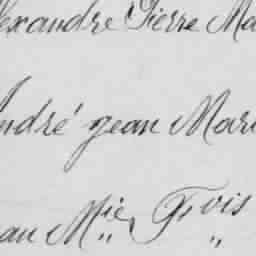 lexandre Pierre Ma
André jean Mari
an Mie Fois